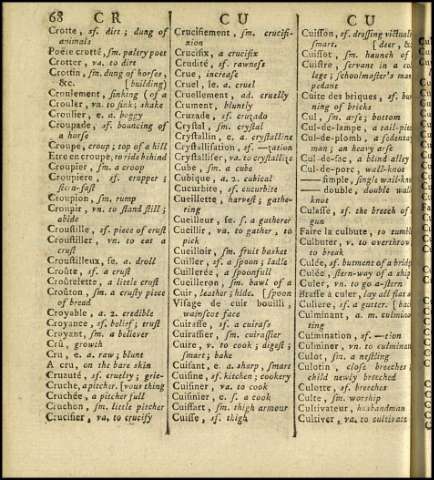 68 C R C U C U
Crotte, sf. dirt; dung of
animals
Poëte crotté, sm. paltry poet
Crotter, va. to dirt
Crottin, sm. dung of horses,
&c. [building)
Croulement, sinking (of a
Crouler, va. to sink; shake
Croulier, e. a. boggy
Croupade, sf. bouncing of
a horse
Croupe, croup; top of a hill
Etre en croupe, to ride behind
Croupier, sm. a croop
Croupiere, sf. crupper;
stern-fast
Croupion, sm. rump
Croupir, vn. to stand still;
abide
Croustille, sf. piece of crust
Croustiller, vn. to eat a
crust
Croustilleux, se. a. droll
Croûte, sf. a crust
Croûtelette, a little crust
Croûton, sm. a crusty piece
of bread
Croyable, a. 2. credible
Croyance, sf. belief; trust
Croyant, sm. a believer
Crû, growth
Cru, e. a. raw; blunt
A cru, on the bare skin
Cruauté, sf. cruelty; grie-
Cruche, a pitcher. [vous thing
Cruchée, a pitcher full
Cruchon, sm. little pitcher
Crucifier, va. to crucify
Crucifiement, sm. crucifi-
xion
Crucifix, a crucifix
Crudité, sf. rawness
Crue, increase
Cruel, le. a. cruel
Cruellement, ad. cruelly
Crument, bluntly
Cruzade, sf. cruzado
Crystal, sm. crystal
Crystallin, e. a. crystalline
Crystallisation, sf. —zation
Crystalliser, va. to crystallize
Cube, sm. a cube
Cubique, a. 2. cubical
Cucurbite, sf. cucurbite
Cueillette, harvest; gathe-
ring
Cueilleur, se. s. a gatherer
Cueillir, va. to gather, to
pick
Cueilloir, sm. fruit basket
Cuiller, sf. a spoon; ladle
Cuillerée, a spoonfull
Cuilleron, sm. bowl of a
Cuir, leather; hide. [spoon
Visage de cuir bouilli,
wainscot face
Cuirasse, sf. a cuirass
Cuirassier, sm. cuirassier
Cuire, v. to cook; digest;
smart; bake
Cuisant, e. a. sharp, smart
Cuisine, sf. kitchen; cookery
Cuisiner, va. to cook
Cuisinier, e. s. a cook
Cuissart, sm. thigh armour
Cuisse, sf. thigh
Cuisson, sf. dressing victuals
smart. [deer, &c
Cuissot, sm. haunch of
Cuistre, servant in a col
lege; schoolmaster's man
pedant
Cuite des briques, sf. bur
ning of bricks
Cul, sm. arse; bottom
Cul-de-lampe, a tail-pie
Cul-de-plomb, a sedentary
man; an heavy arse
Cul-de-sac, a blind alley
Cul-de-porc, wall-knot
— simple, single wall-knot
— double, double wall
knot
Culasse, sf. the breech of
gun
Faire la culbute, to tumble
Culbuter, v. to overthrow
to break
Culée, sf. butment of a bridg
Culée, stern-way of a ship
Culer, vn. to go a-stern
Brasse à culer, lay all flat
Culiere, sf. a gutter. [bac
Culminant, a. m. culmina
ting
Culmination, sf. —tion
Culminer, vn. to culminat
Culot, sm. a nestling
Culotin, close breeches;
child newly breeched
Culotte, sf. breeches
Culte, sm. worship
Cultivateur, husbandman
Cultiver, va. to cultivate